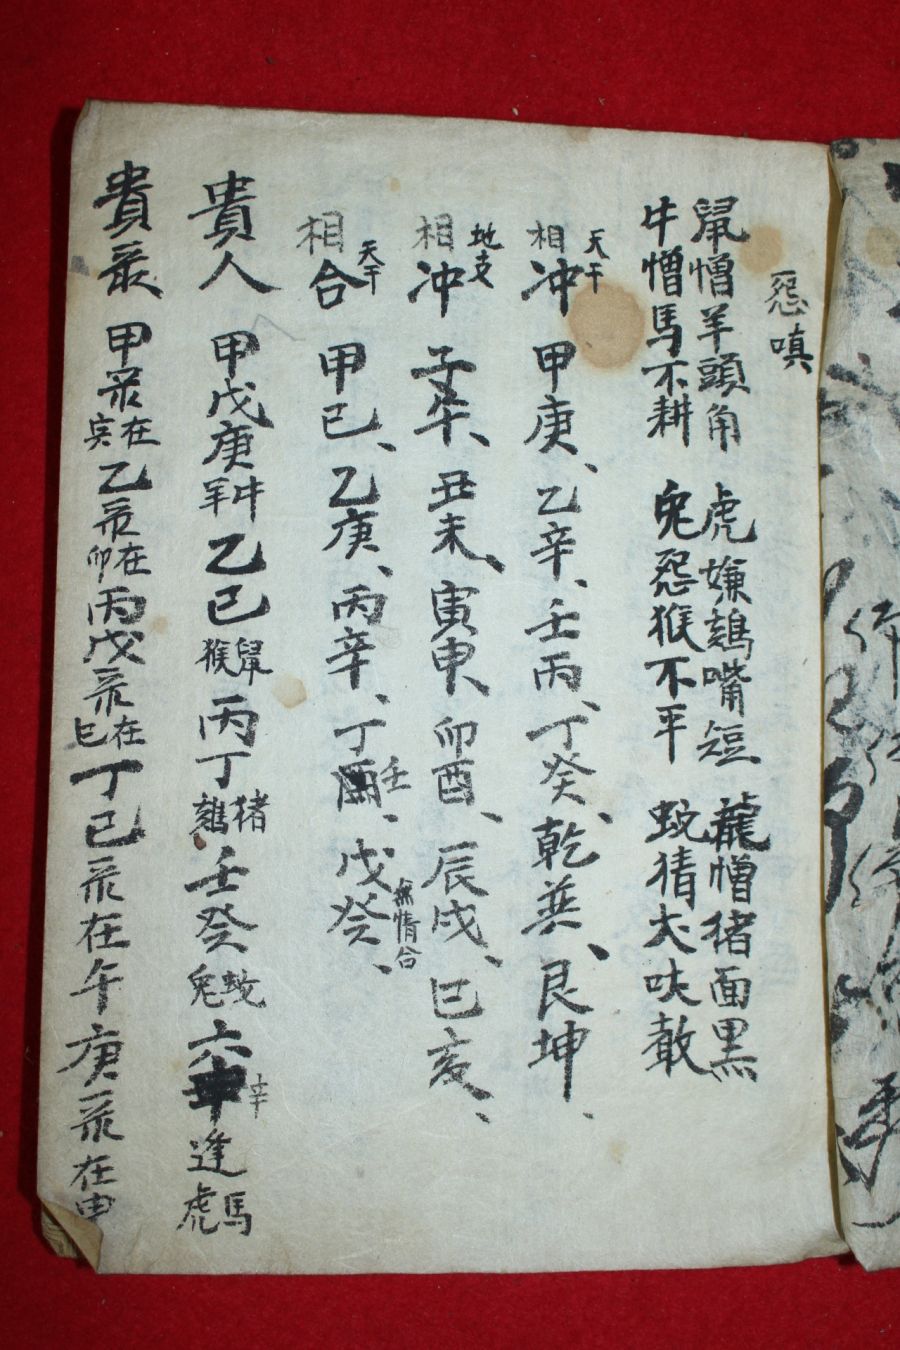 怨嗔
鼠憎羊頭角 虎嫌鷄嘴短 龍憎猪面黑
牛憎馬不耕 兎怨猴不平 蛇猜犬吠敢
天干相冲 甲庚、乙辛、壬丙、丁癸、乾巽、艮坤、
地支相冲 子午、丑未、寅申、卯酉、辰戌、巳亥、
天干相合 甲己、乙庚、丙辛、丁壬、戊癸、無情合
貴人 甲戊庚牛羊乙己鼠猴丙丁猪鷄壬癸蛇兎六辛逢馬虎
貴彔 甲彔在寅乙彔在卯丙戊彔在巳丁己彔在午庚彔在申